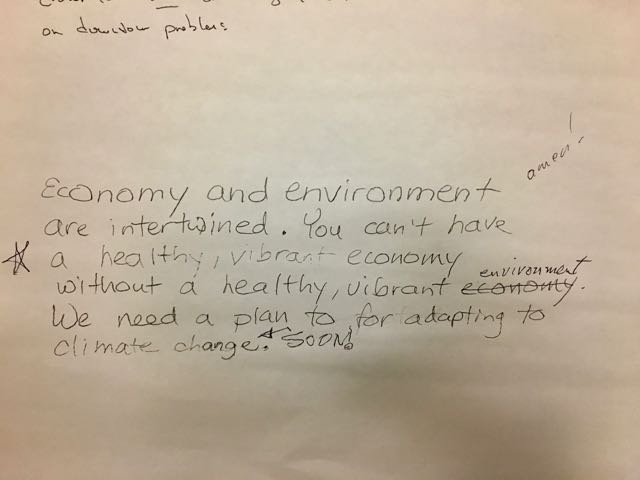 on downtown problems
amen!
Economy and environment
are intertwined. You can't have
a healthy, vibrant economy
environment
without a healthy, vibrant economy.
We need a plan to for adapting to
climate change. SOON!